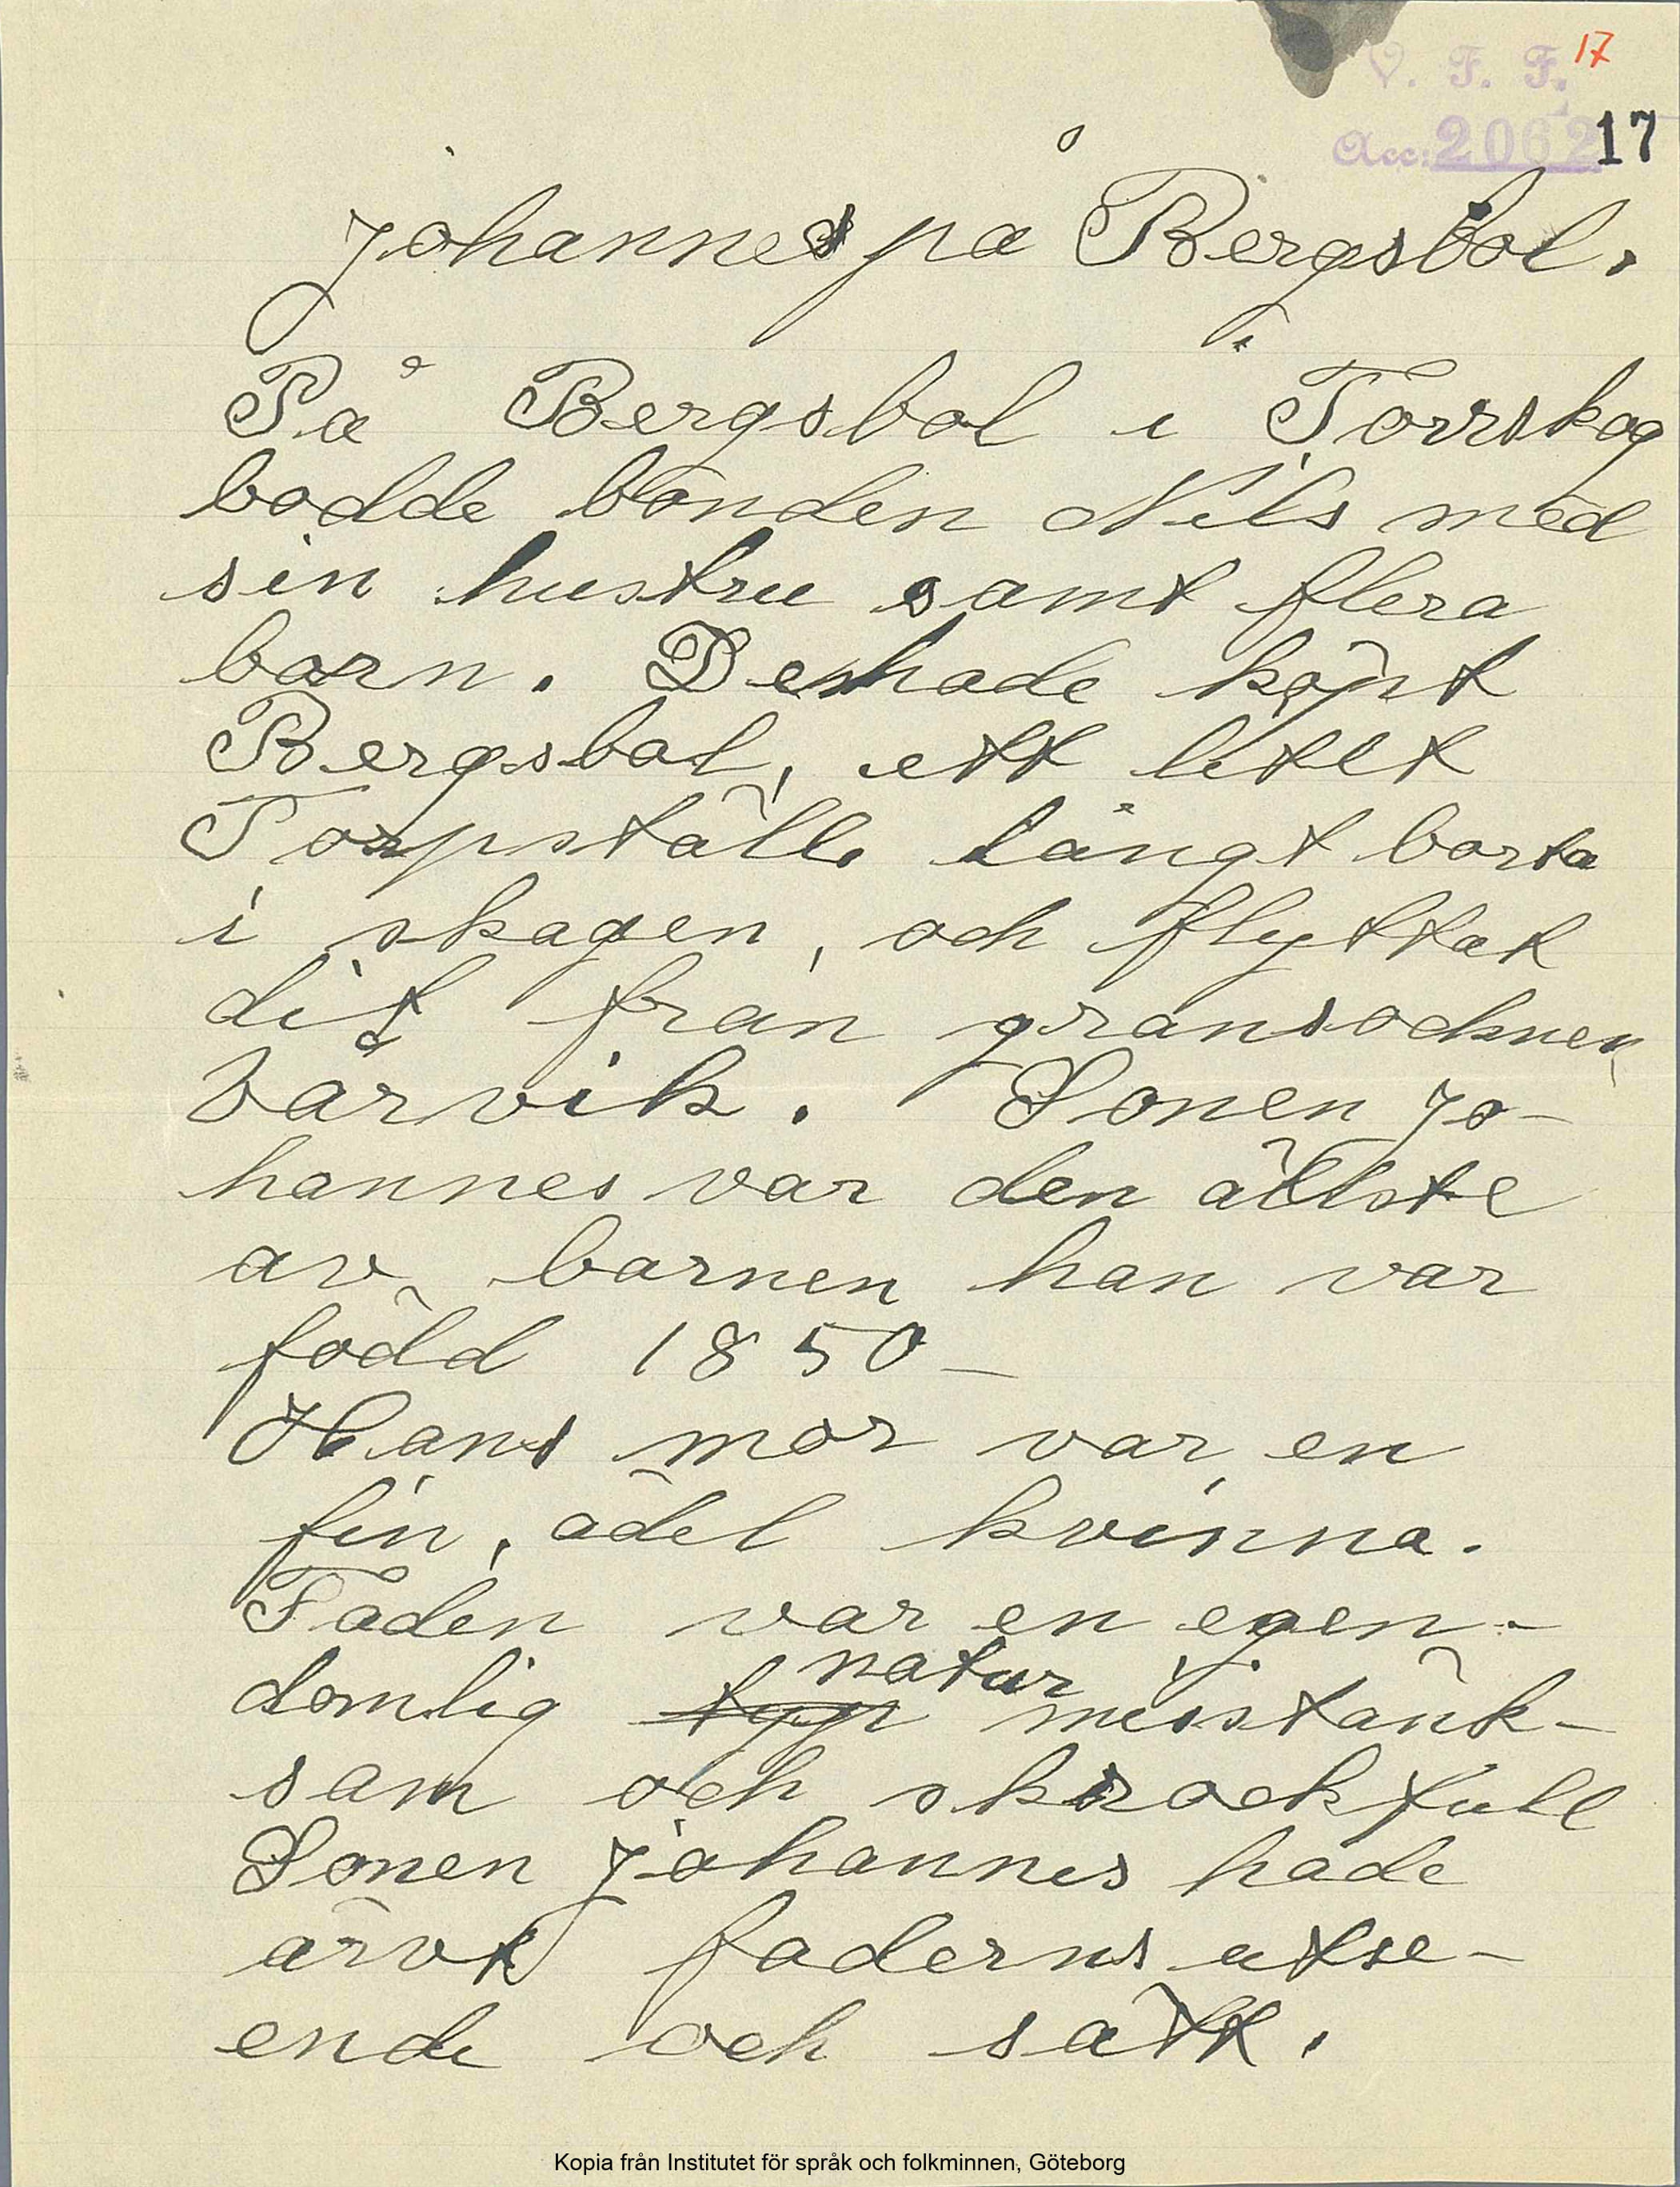 17
V. F. F.
Acc: 2062 17
Johannes på Bergsbol.
På Bergsbol i Törrskog
bodde bonden Nils med
sin hustru samt flera
barn. De hade köpt
Bergsbol, ett litet
Torpställe långt borta
i skogen, och flyttat
dit från gränsocknen
Vårvik. Sonen Jo-
hannes var den älste
av barnen han var
född 1850 –
Hans mor var en
fin, ädel kvinna.
Faden var en egen-
domlig typ natur misstänk-
sam och skrockfull
Sonen Johannes hade
ärvt faderns utse-
ende och sätt.
Kopia från Institutet för språk och folkminnen, Göteborg